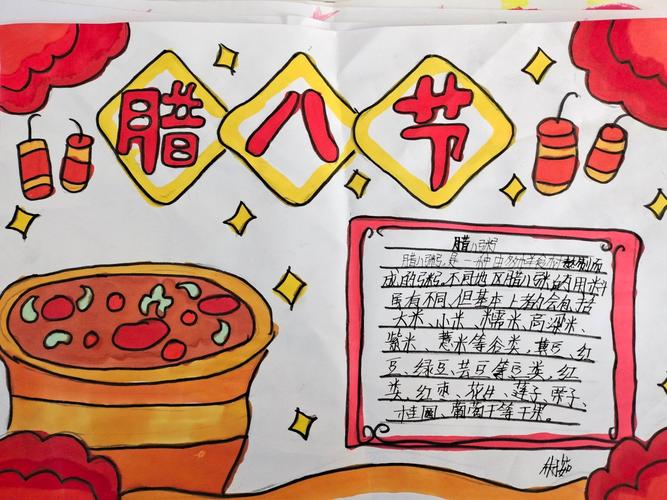 腊八节
腊八粥
腊八粥,是一种由多样食材熬制而
成的粥,不同地区腊八粥的用料
虽有不同,但基本上都会包括
大米、小米、糯米、高粱米、
紫米、薏米等谷类,黄豆、红
豆、绿豆、芸豆等豆类,红
类,红枣、花生、莲子、栗子、
桂圆、葡萄干等干果。